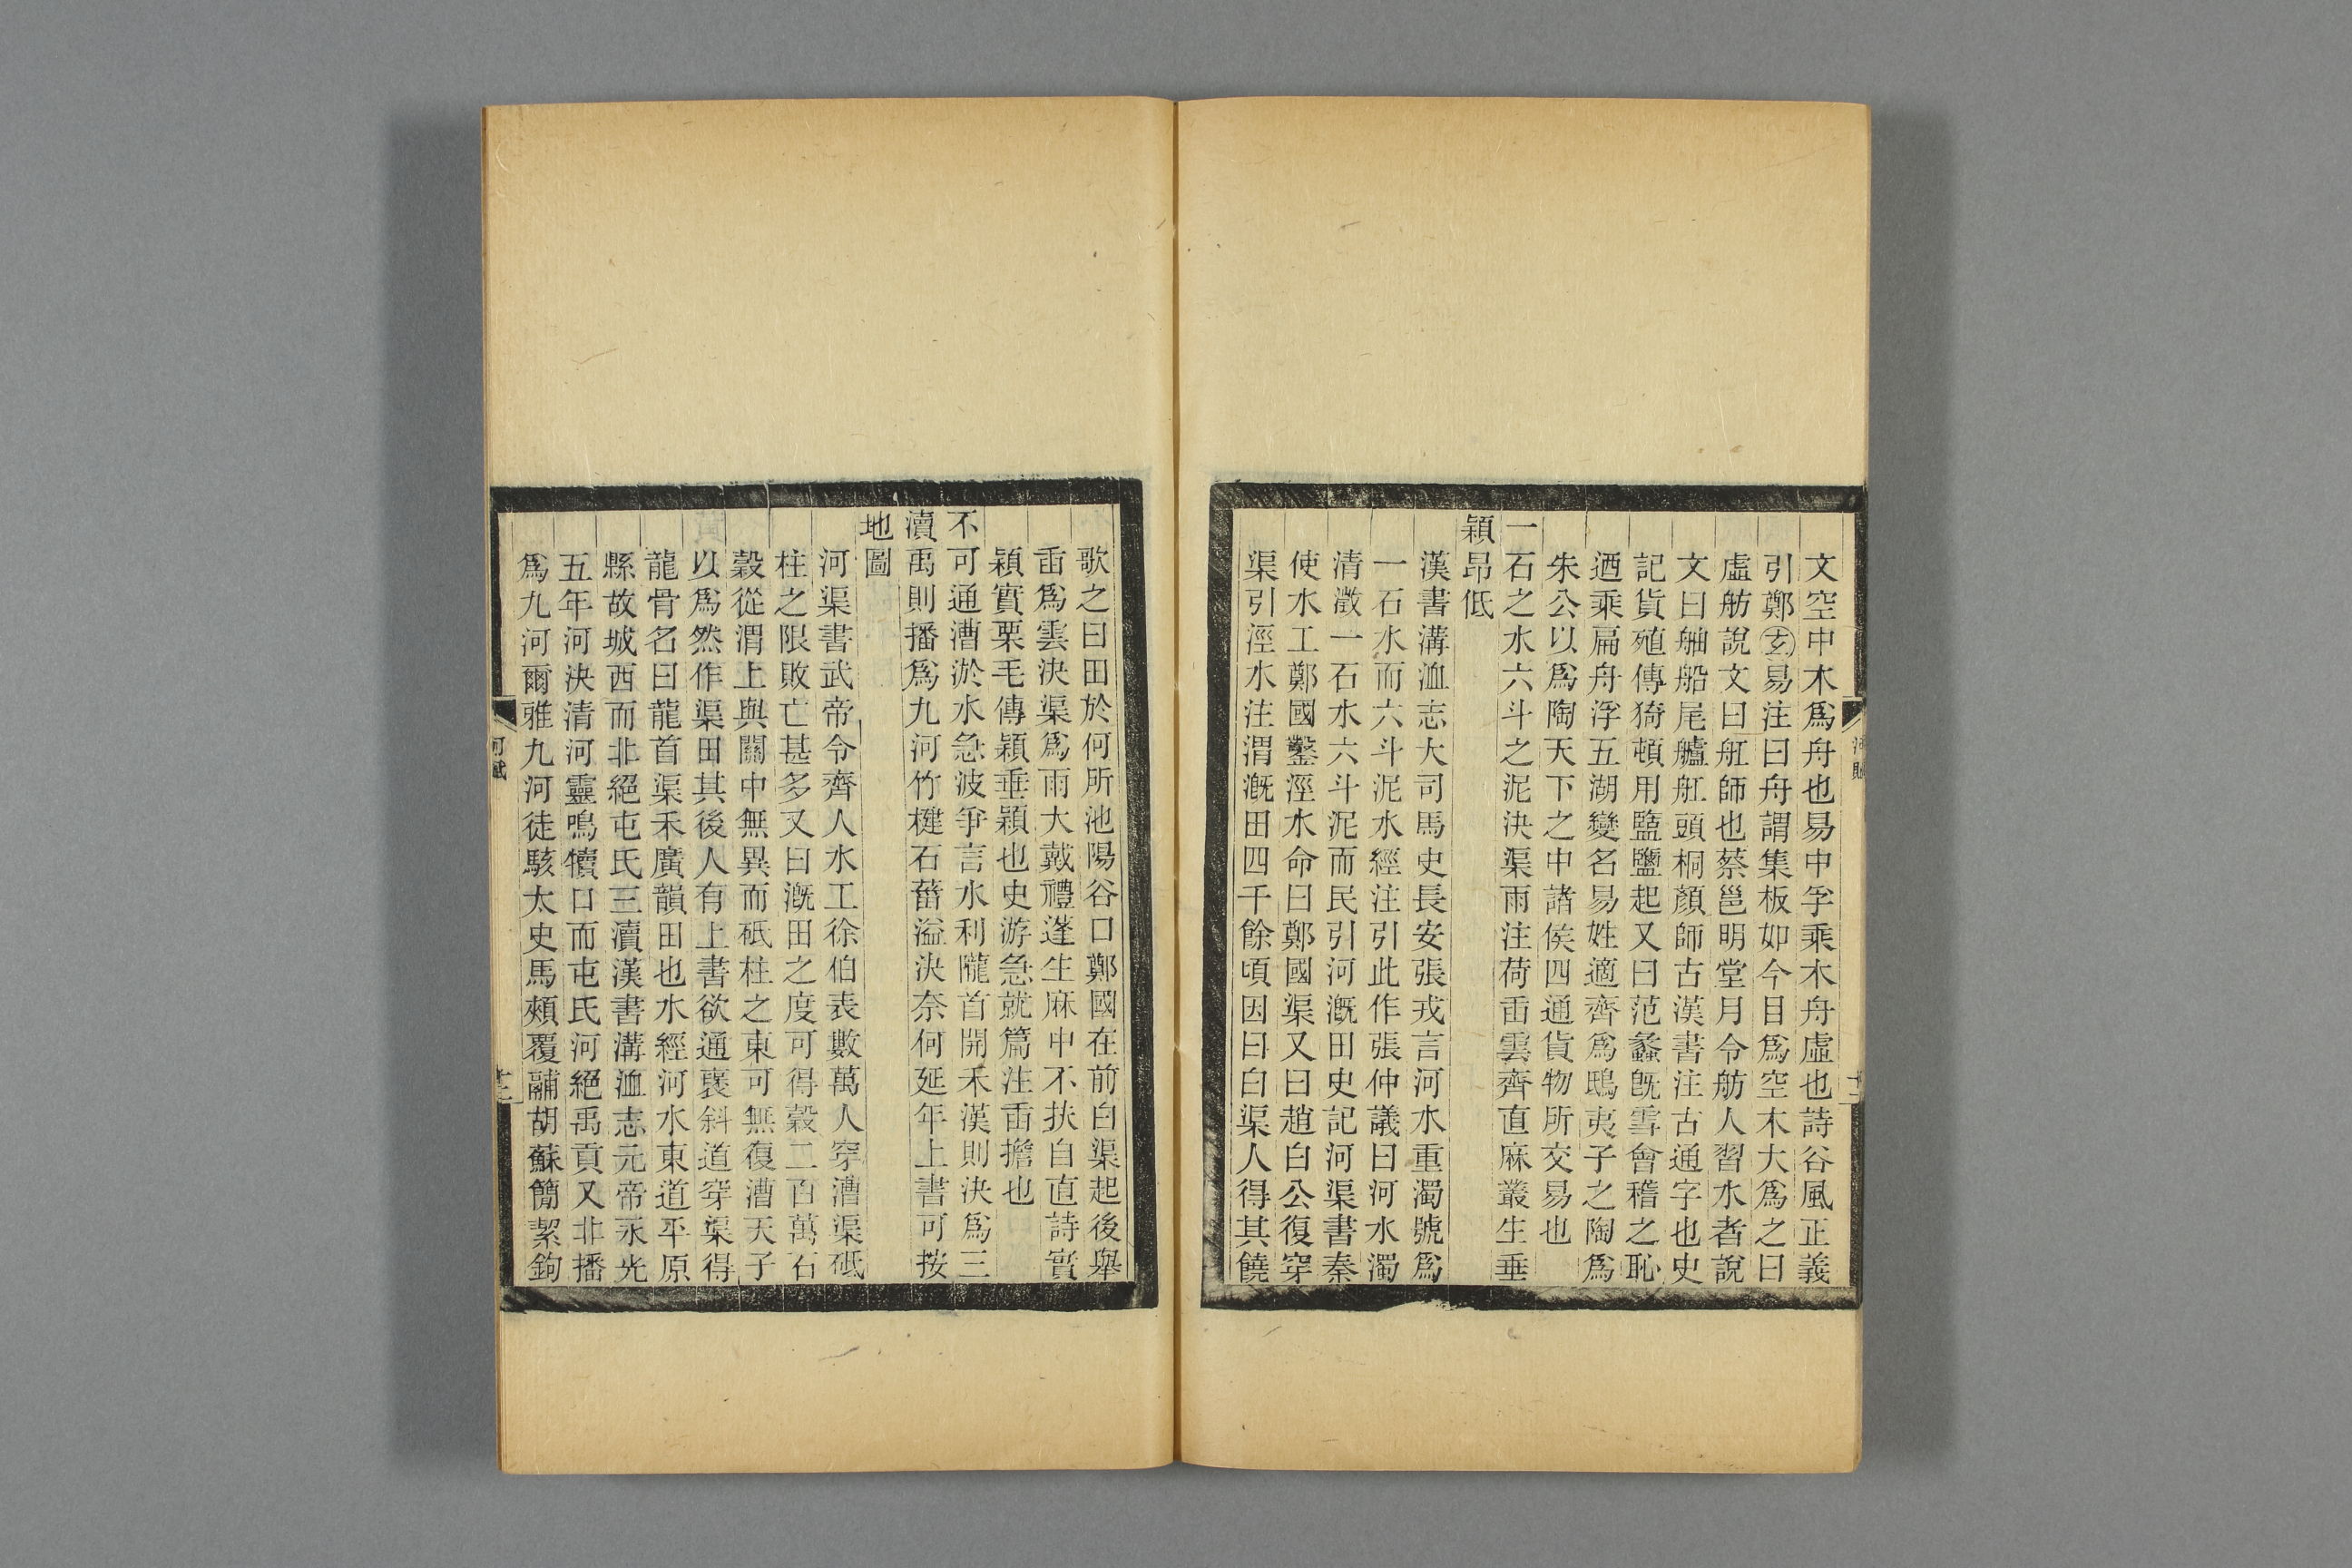 文空中木爲舟也易中孚乘木舟虛也詩谷風正義
引鄭玄易注曰舟謂集板如今目爲空木大爲之曰
虛舫說文曰舡師也蔡邕明堂月令舫人習水者說
文曰舳船尾艫舡頭桐顏師古漢書注古通字也史
記貨殖傳猗頓用盬鹽起又曰范蠡旣雪會稽之恥
迺乘扁舟浮五湖變名易姓適齊爲鴟夷子之陶爲
朱公以爲陶天下之中諸侯四通貨物所交易也
一石之水六斗之泥決渠雨注荷臿雲齊直麻叢生垂
穎昂低
漢書溝洫志大司馬史長安張戎言河水重濁號爲
一石水而六斗泥水經注引此作張仲議曰河水濁
清澂一石水六斗泥而民引河漑田史記河渠書秦
使水工鄭國鑿涇水命曰鄭國渠又曰趙白公復穿
渠引涇水注渭漑田四千餘頃因曰白渠人得其饒
歌之曰田於何所池陽谷口鄭國在前白渠起後舉
臿爲雲決渠爲雨大戴禮蓬生麻中不扶自直詩實
穎實栗毛傳穎垂穎也史游急就篇注臿擔也
不可通漕淤水急波爭言水利隴首開禾漢則決爲三
瀆禹則播爲九河竹楗石葘溢決奈何延年上書可按
地圖
河渠書武帝令齊人水工徐伯表數萬人穿漕渠砥
柱之限敗亡甚多又曰漑田之度可得穀二百萬石
穀從渭上與關中無異而砥柱之東可無復漕天子
以爲然作渠田其後人有上書欲通襃斜道穿渠得
龍骨名曰龍首渠禾廣韻田也水經河水東道平原
縣故城西而北絕屯氏三瀆漢書溝洫志元帝永光
五年河決清河靈鳴犢口而屯氏河絕禹貢又北播
爲九河爾雅九河徒駭太史馬頰覆鬴胡蘇簡絜鉤
河賦